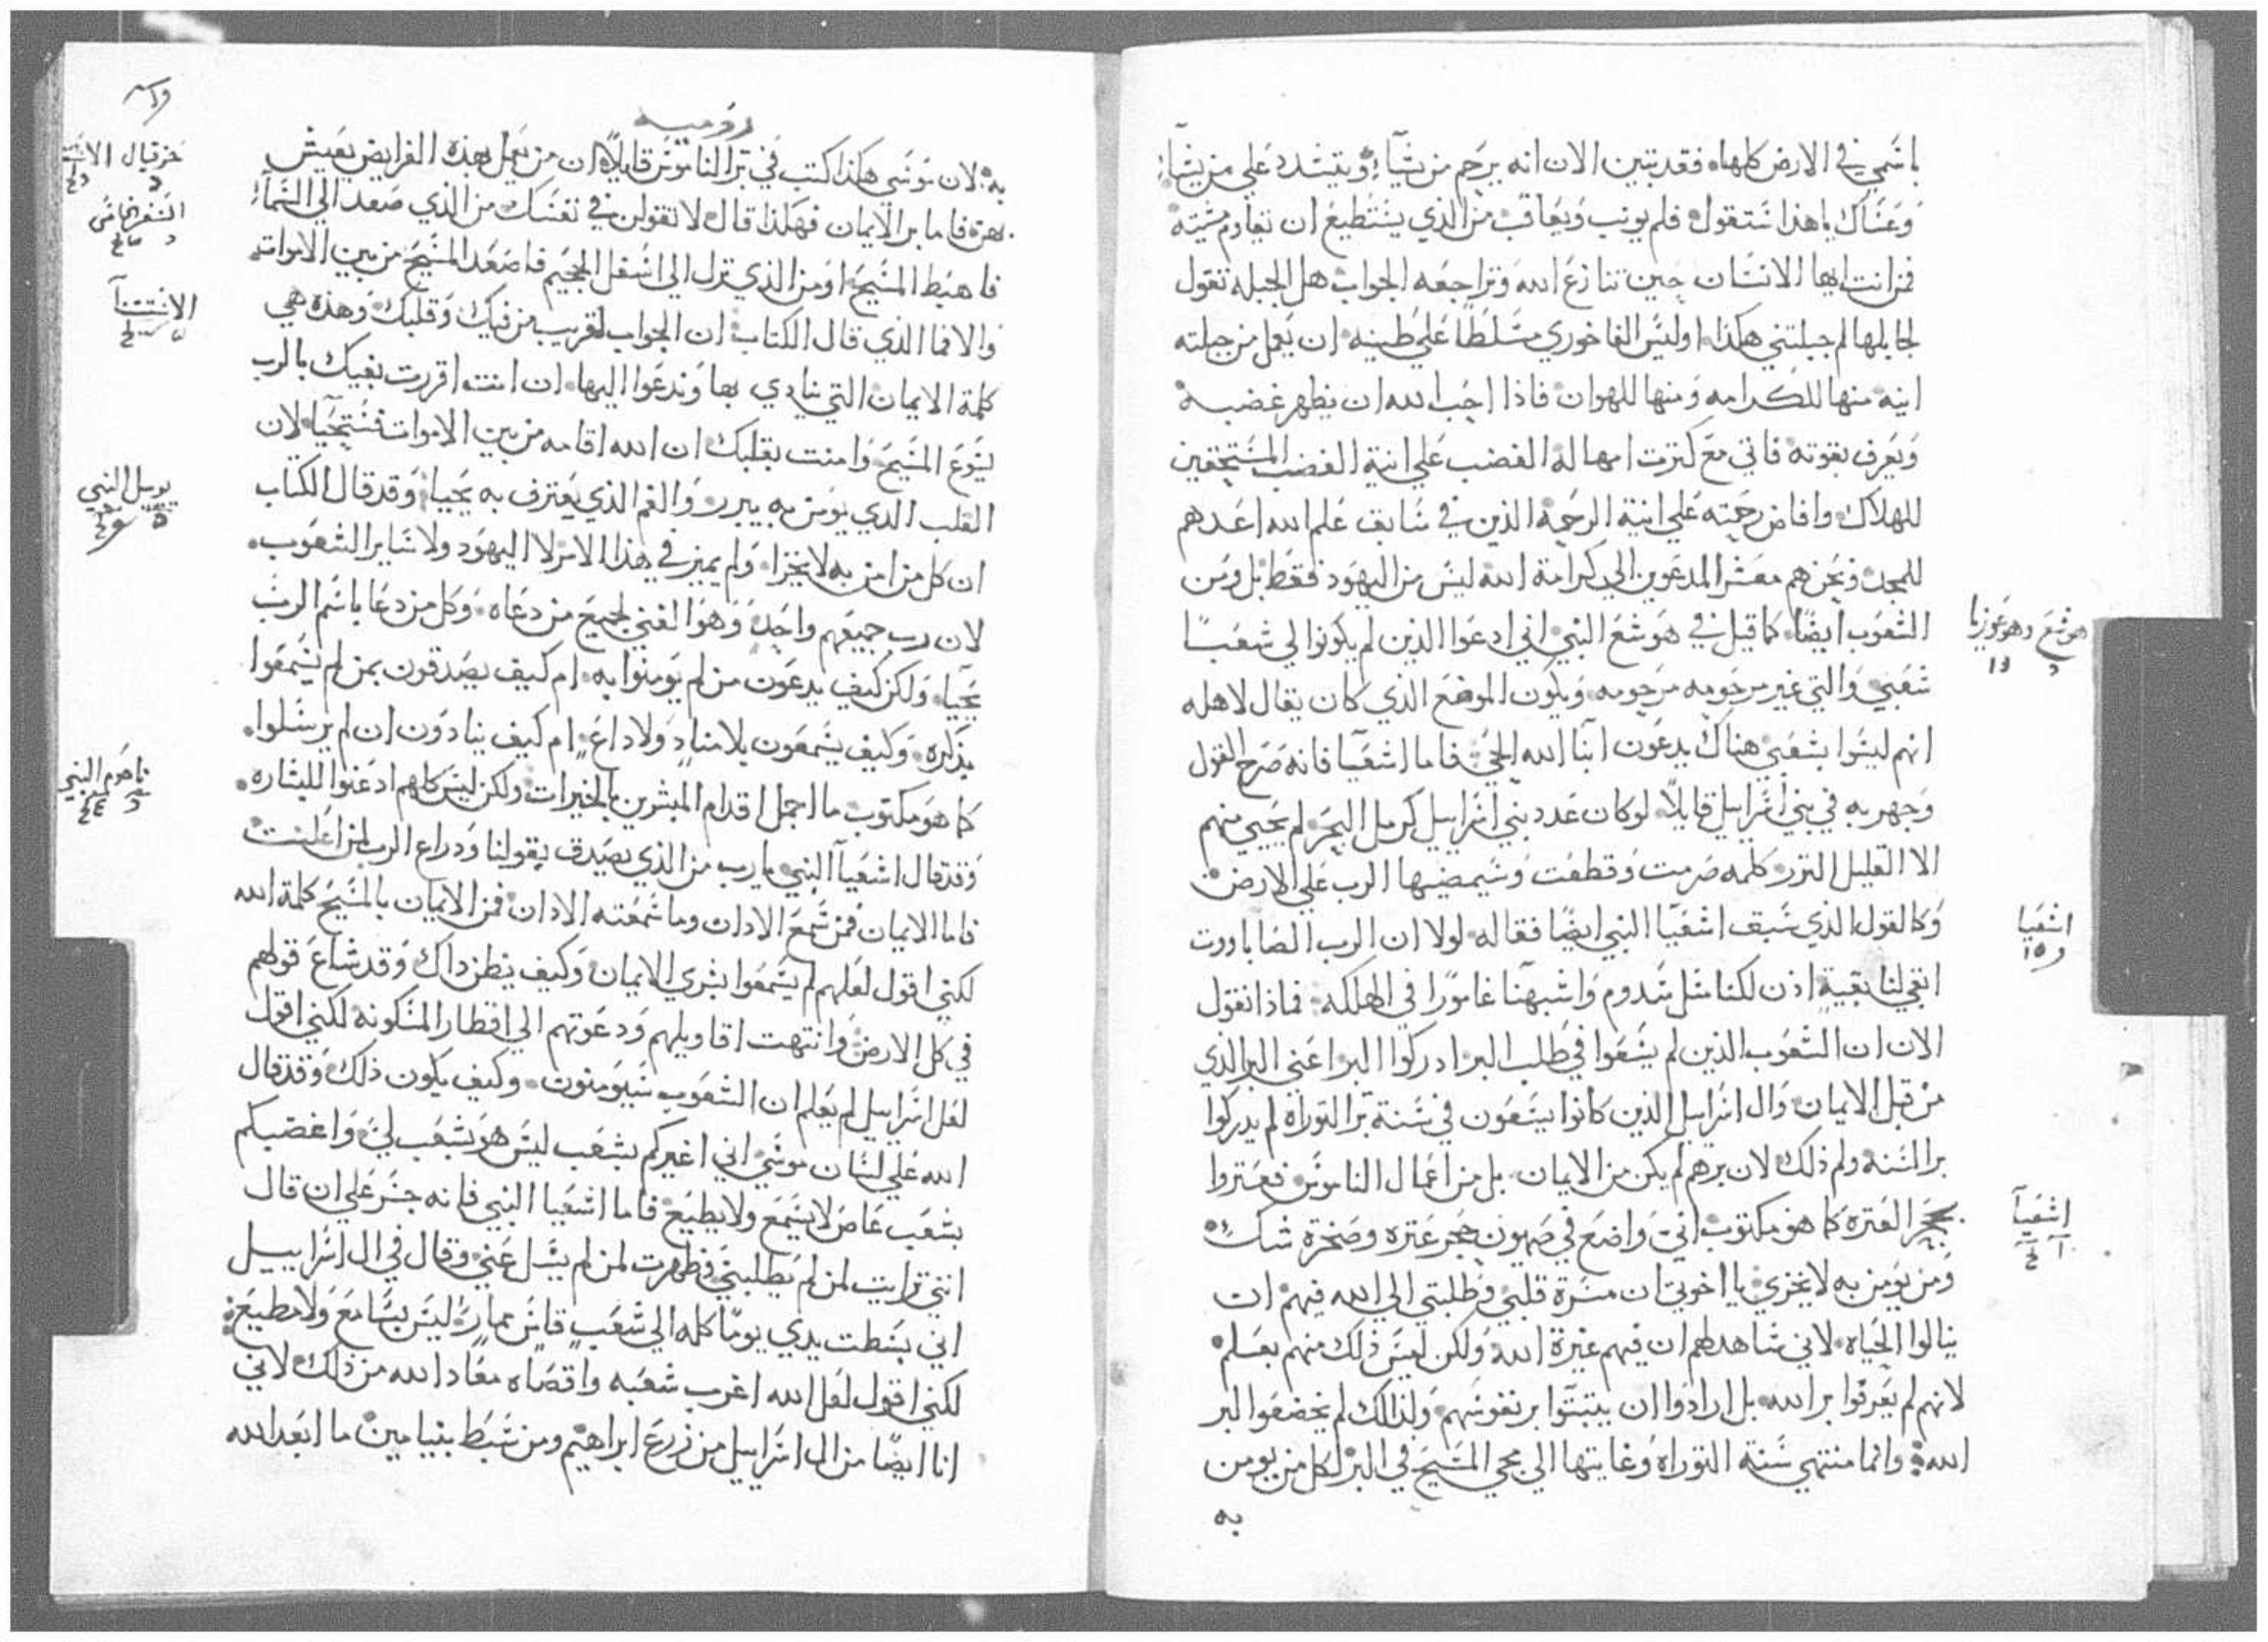 باسمي في الارض كلها. فقد تبين الان انه يرحم من يشاء. ويتشدد علي من يشاء.
وعساك يا هذا ستقول. فلم يونب ويعاقب من الذي يستطيع ان يقاوم مشيته
فمن انت ايها الانسان حين تنازع الله وتراجعه الجواب هل الجبله تقول
لجابلها لم جبلتني هكذا. اوليس الفاخوري مسلطًا علي طينه. ان يعمل من جبلته
انيه منها للكرامه ومنها للهوان. فاذا احب الله ان يظهر غضبه
ويعرف بقوته فاتي مع كثرت امهاله الغضب علي انية الغضب المستحقين
للهلاك. وافاض رحمته علي انية الرحمة الذين في سابق علم الله اعدهم
للمجد. ونحن هم معشر المدعوين الي كرامة الله ليس من اليهود فقط بل ومن
الشعوب ايضًا. كما قيل في هوشع النبي. اني ادعوا الذين لم يكونوا لي شعبًا
شعبي. والتي غير مرحومه مرحومه. ويكون الموضع الذي كان يقال لاهله
انهم ليسوا بشعبي هناك يدعون ابنا الله الحي. فاما اشعيا فانه صرح القول
وجهر به في بني اسراييل قايلًا. لو كان عدد بني اسراييل كرمل البحر. لم يحيي منهم
الا القليل النزر. كلمه صرمت وقطعت وسيمضيها الرب علي الارض.
وكالقول الذي سبق اشعيا النبي ايضًا فقاله. لولا ان الرب الصاباووت
ابقي لنا بقية. اذن لكنا مثل سدوم واشبهنا غامورا في الهلكه. فماذا نقول
الان ان الشعوب الذين لم يسعوا في طلب البر ادركوا البر اعني البر الذي
من قبل الايمان. وال اسراييل الذين كانوا يسعون في سنة بر التوراه لم يدركوا
بر السنه. ولم ذلك. لان برهم لم يكن من الايمان. بل من اعمال الناموس. فعتروا
بحجر العتره كما هو مكتوب. اني واضع في صهيون حجر عتره وصخرة شك.
ومن يومن به لا يخزي. يا اخوتي ان مسرة قلبي وطلبتي الي الله فيهم ان
ينالوا الحياه. لاني شاهد لهم ان فيهم غيرة الله. ولكن ليس ذلك منهم بعلم.
لانهم لم يعرفوا بر الله. بل ارادوا ان يتبتوا بر نفوسهم. ولذلك لم يخضعوا لبر
الله. وانما منتهي سنة التوراه وغايتها الي مجي المسيح في البر لكل من يومن
به
هوشع
اشعيا
اشعيا
روميه
به. لان موسي هكذا كتب في بر الناموس قايلًا. ان من يعمل بهذه الفرايض يعيش
بهن. فاما بر الايمان فهكذا قال لا تقولن في نفسك من الذي صعد الي السماء
فاهبط المسيح. او من الذي نزل الي اسفل الجحيم فاصعد المسيح من بين الاموات.
والا فما الذي قال الكتاب. ان الجواب لقريب من فيك وقلبك. وهذه هي
كلمة الايمان التي ننادي بها وندعوا اليها. ان انت اقررت بفيك بالرب
يسوع المسيح. وامنت بقلبك ان الله اقامه من بين الاموات فستحيا. لان
القلب الذي يومن به يبرر. والفم الذي يعترف به يحيا. وقد قال الكتاب
ان كل من امن به لا يخزا. ولم يميز في هذا الامر لا اليهود ولا ساير الشعوب.
لان رب جميعهم واحد. وهو الغني لجميع من دعاه. وكل من دعا باسم الرب
يحيا. ولكن كيف يدعون من لم يومنوا به. ام كيف يصدقون بمن لم يسمعوا
بذكره. وكيف يسمعون بلا منادٍ ولا داعٍ. ام كيف ينادون ان لم يرسلوا.
كما هو مكتوب. ما اجمل اقدام المبشرين بالخيرات. ولكن ليس كلهم ادعنوا للبشاره.
وقد قال اشعيا النبي. يا رب من الذي يصدق بقولنا ودراع الرب لمن اعلنت
فاما الايمان فمن سمع الادان. وما سمعته الادان. فمن الايمان بالمسيح كلمة الله
لكني اقول لعلهم لم يسمعوا بشري الايمان. وكيف يظن داك وقد شاع قولهم
في كل الارض. وانتهت اقاويلهم ودعوتهم الي اقطار المسكونه. لكني اقول
لعل اسراييل لم يعلم ان الشعوب سيومنون. وكيف يكون ذلك. وقد قال
الله علي لسان موسي. اني اغيركم بشعب ليس هو بشعب لي. واغضبكم
بشعب عاص لا يسمع ولا يطيع. فاما اشعيا النبي فانه جسر علي ان قال
انني ترايت لمن لم يطلبني. وظهرت لمن لم يسل عني. وقال في ال اسراييل
اني بسطت يدي يومًا كله الي شعب قاس ممار ليس بسامع ولا مطيع.
لكني اقول لعل الله اغرب شعبه واقصاه. معاد الله من ذلك. لاني
انا ايضًا من ال اسراييل من زرع ابراهيم ومن سبط بنيامين ما ابعد الله
حزقيال
السفر الخامس
الاستثنا
يوييل النبي
ناحوم النبي